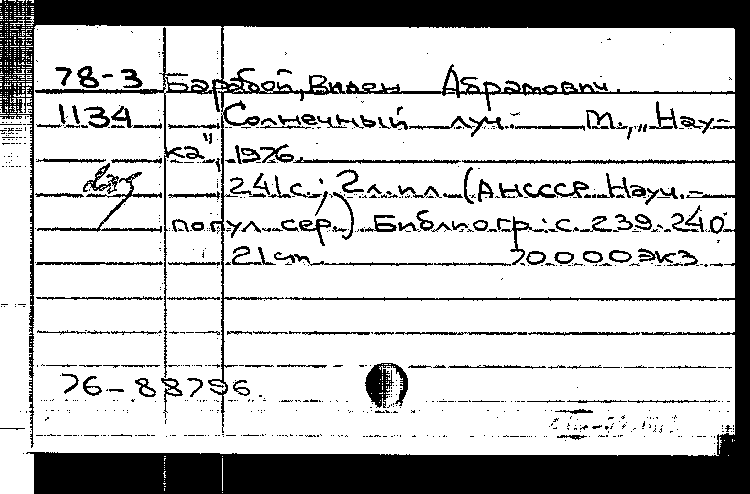 78-3 Барабой, Вилен Абрамович.
1134 Солнечный луч. - М., „Нау-
ка", 1976.
241с.; 2л.пл. (АНСССР. Науч.-
попул. сер.) Библиогр.: с. 239-240
21ст. 70000экз
76-88796.